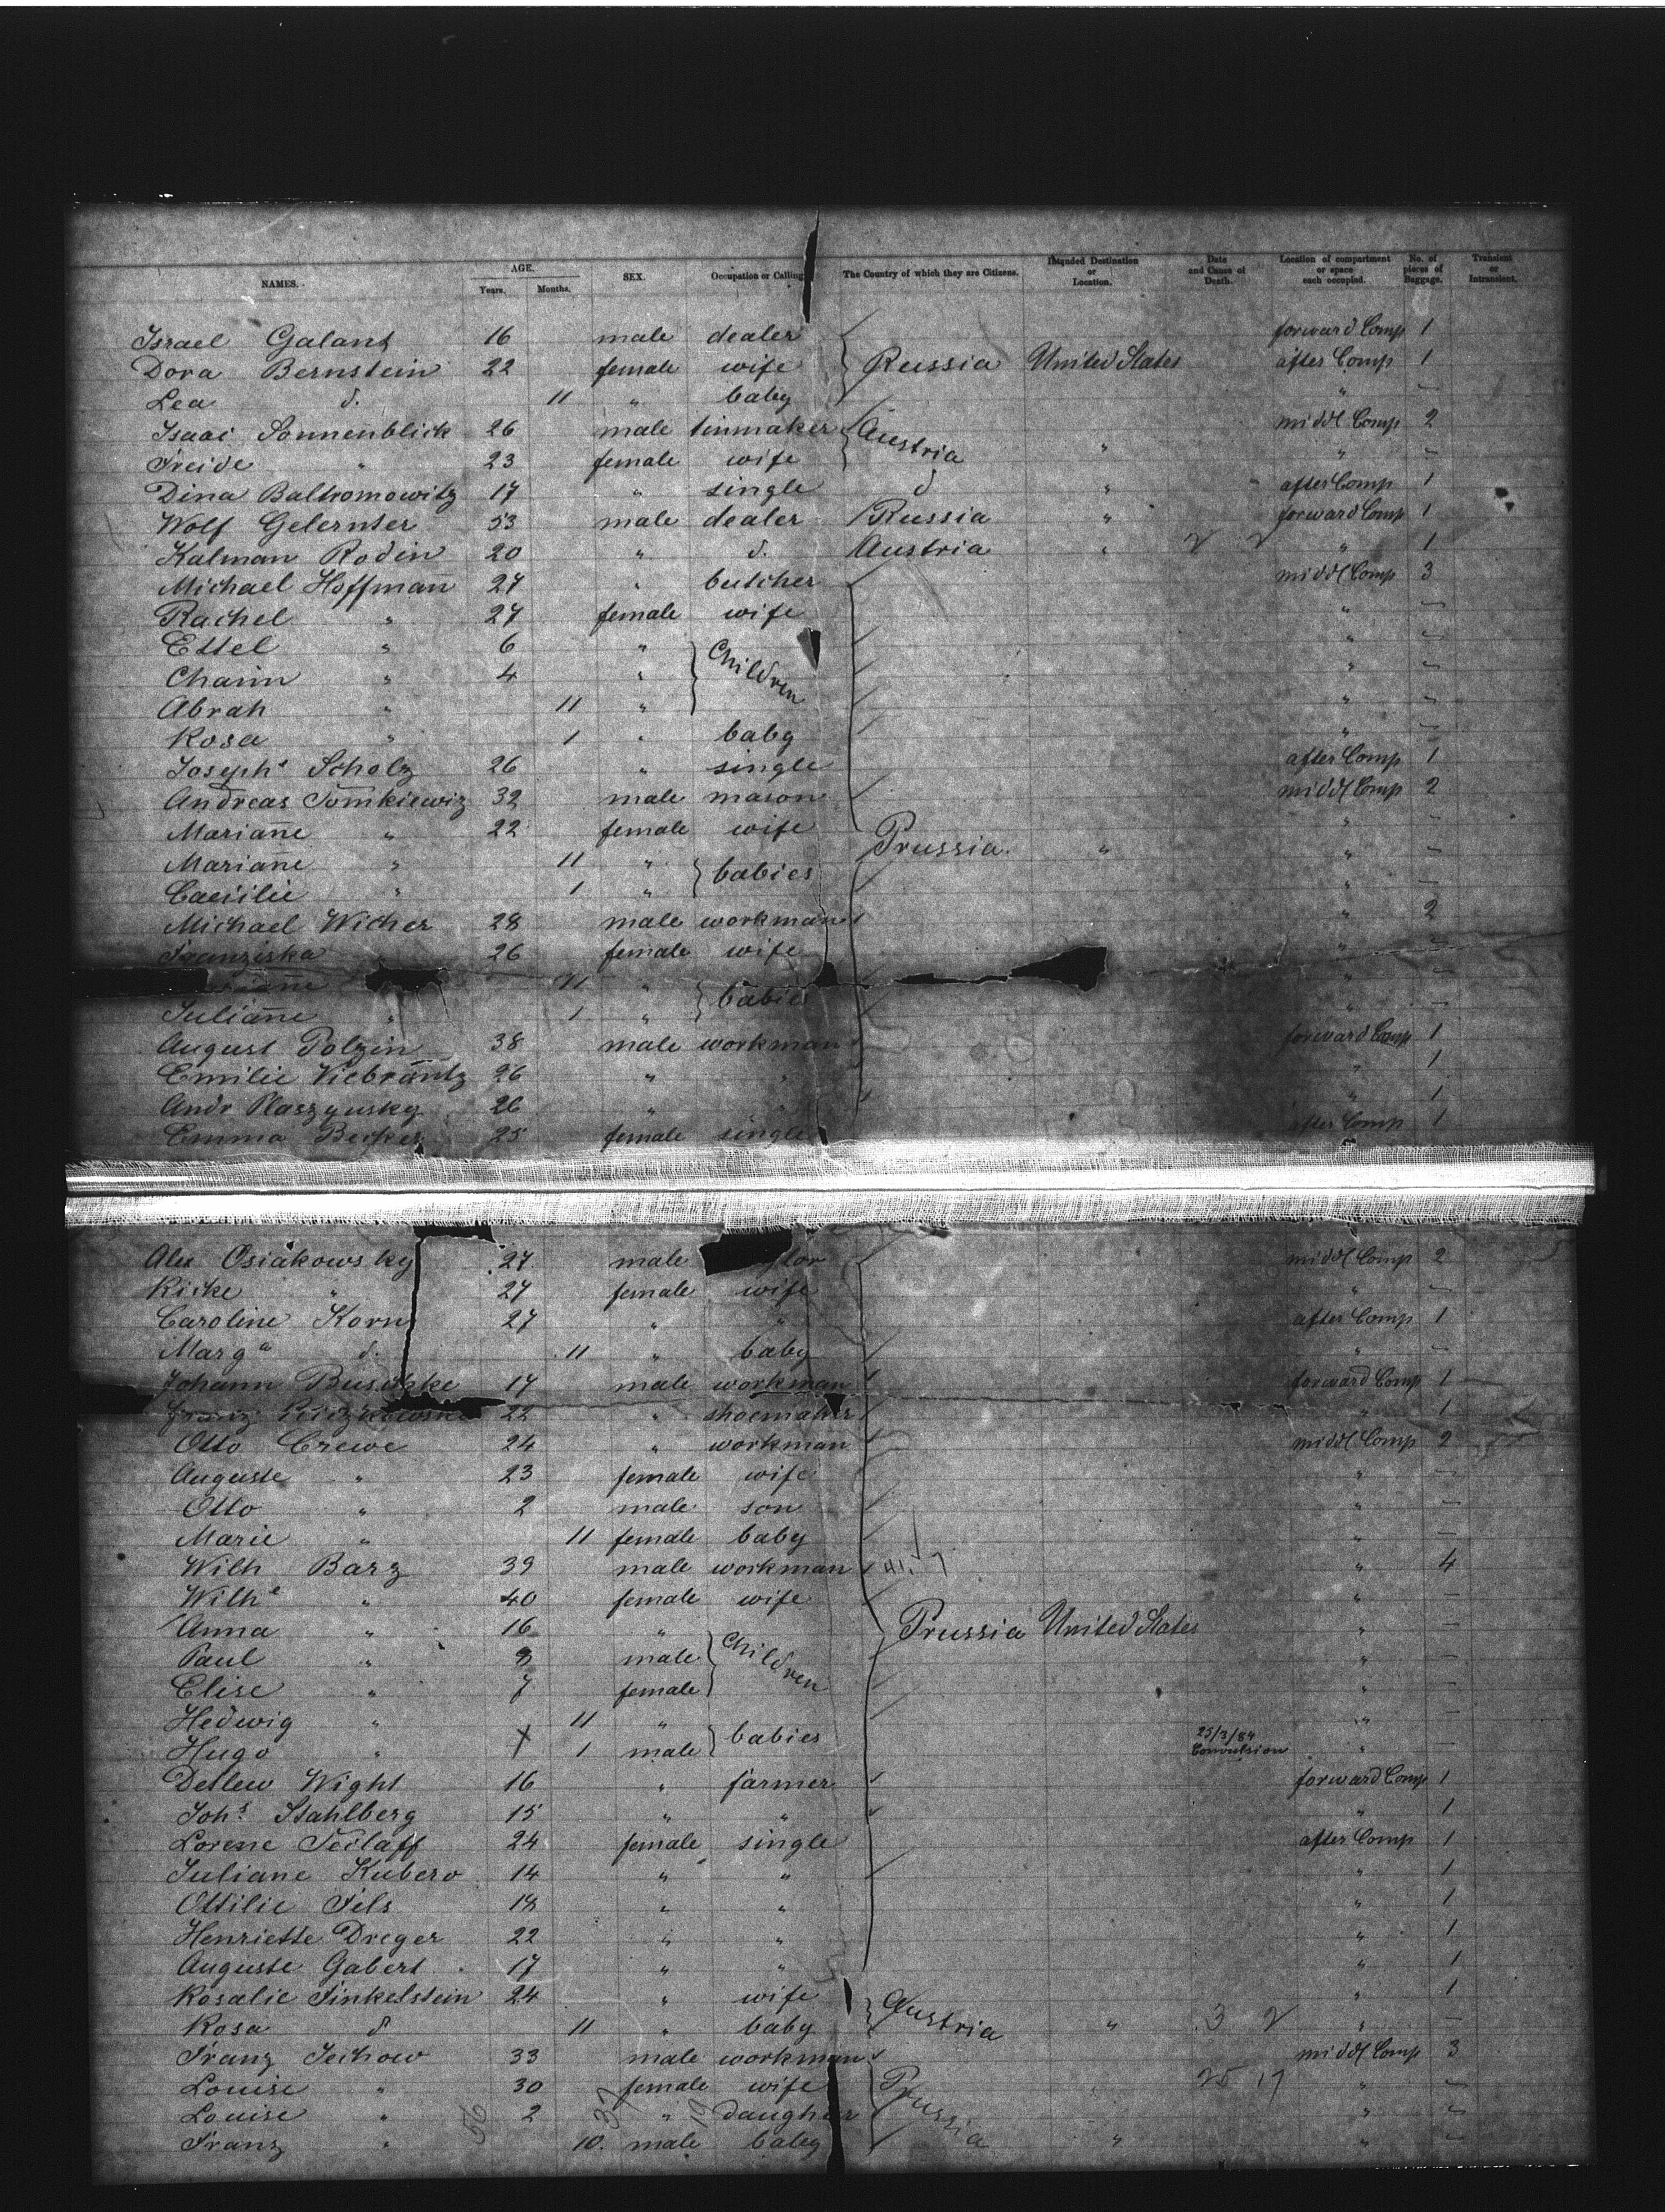 NAMES. AGE. Years. Months. SEX. Occupation or Calling The Country of which they are Citizens. Intended Destination or Location. Date and Cause of Death. Location of compartment or space each occupied. No. of pieces of Baggage. Transient or Intransient.
Israel Galant 16 male dealer forward Comp 1
Dora Bernstein 22 female wife Russia United States after Comp 1
Lea d. 11 " baby " —
Isaac Sonnenblick 26 male tinmaker Austria middl Comp 2
Freide " 23 female wife " " —
Dina Baltromowitz 17 " single d " after Comp 1
Wolf Gelernter 53 male dealer Russia " forward Comp 1
Kalman Rodin 20 " d. Austria " 2 2 " 1
Michael Hoffman 27 " butcher middl Comp 3
Rachel " 27 female wife " —
Ettel " 6 " Children " —
Chaim " 4 " " —
Abrah " 11 " " —
Rosa " 1 " baby " —
Josephe Scholz 26 " single after Comp 1
Andreas Tomkiewiz 32 male mason middl Comp 2
Mariane " 22 female wife " —
Mariane " 11 " babies Prussia " " —
Caecilie " 1 " " —
Michael Wicher 28 male workman " 2
Franziska " 26 female wife " —
11 " babies " —
Juliane " 1 " " —
August Polzin 38 male workman forward Comp 1
Emilie Viebrantz 26 " " " 1
Andr Plaszynsky 26 " " " 1
Emma Becker 25 female single after Comp 1
Alex Osiakowsky 27 male middl Comp 2
Ricke " 27 female wife " —
Caroline Korn 27 " " after Comp 1
Marga d. 11 " baby " —
Johann Buschke 17 male workman forward Comp 1
Franz 22 " shoemaker " 1
Otto Crewe 24 " workman middl Comp 2
Auguste " 23 female wife " —
Otto " 2 male son " —
Marie " 11 female baby " —
Wilh Barz 39 male workman " 4
Wilhe " 40 female wife " —
Anna " 16 " Children Prussia United States " —
Paul " 9 male " —
Elise " 7 female " —
Hedwig " 11 " babies " —
Hugo " 1 male 25/3/84 Convulsion " —
Detlew Wight 16 " farmer forward Comp 1
Johs Stahlberg 15 " " " 1
Lorene Teilaff 24 female single after Comp 1
Juliane Kubero 14 " " " 1
Ottilie Fels 18 " " " 1
Henriette Dreger 22 " " " 1
Auguste Gabert 17 " " " 1
Rosalie Finkelstein 24 " wife Austria " 1
Rosa d 11 " baby " 3 2 " —
Franz Jechow 33 male workman Prussia middl Comp 3
Louise " 30 female wife 25 17 " —
Louise " 2 " daughter " —
Franz " 10. male baby " " —
56 37 19